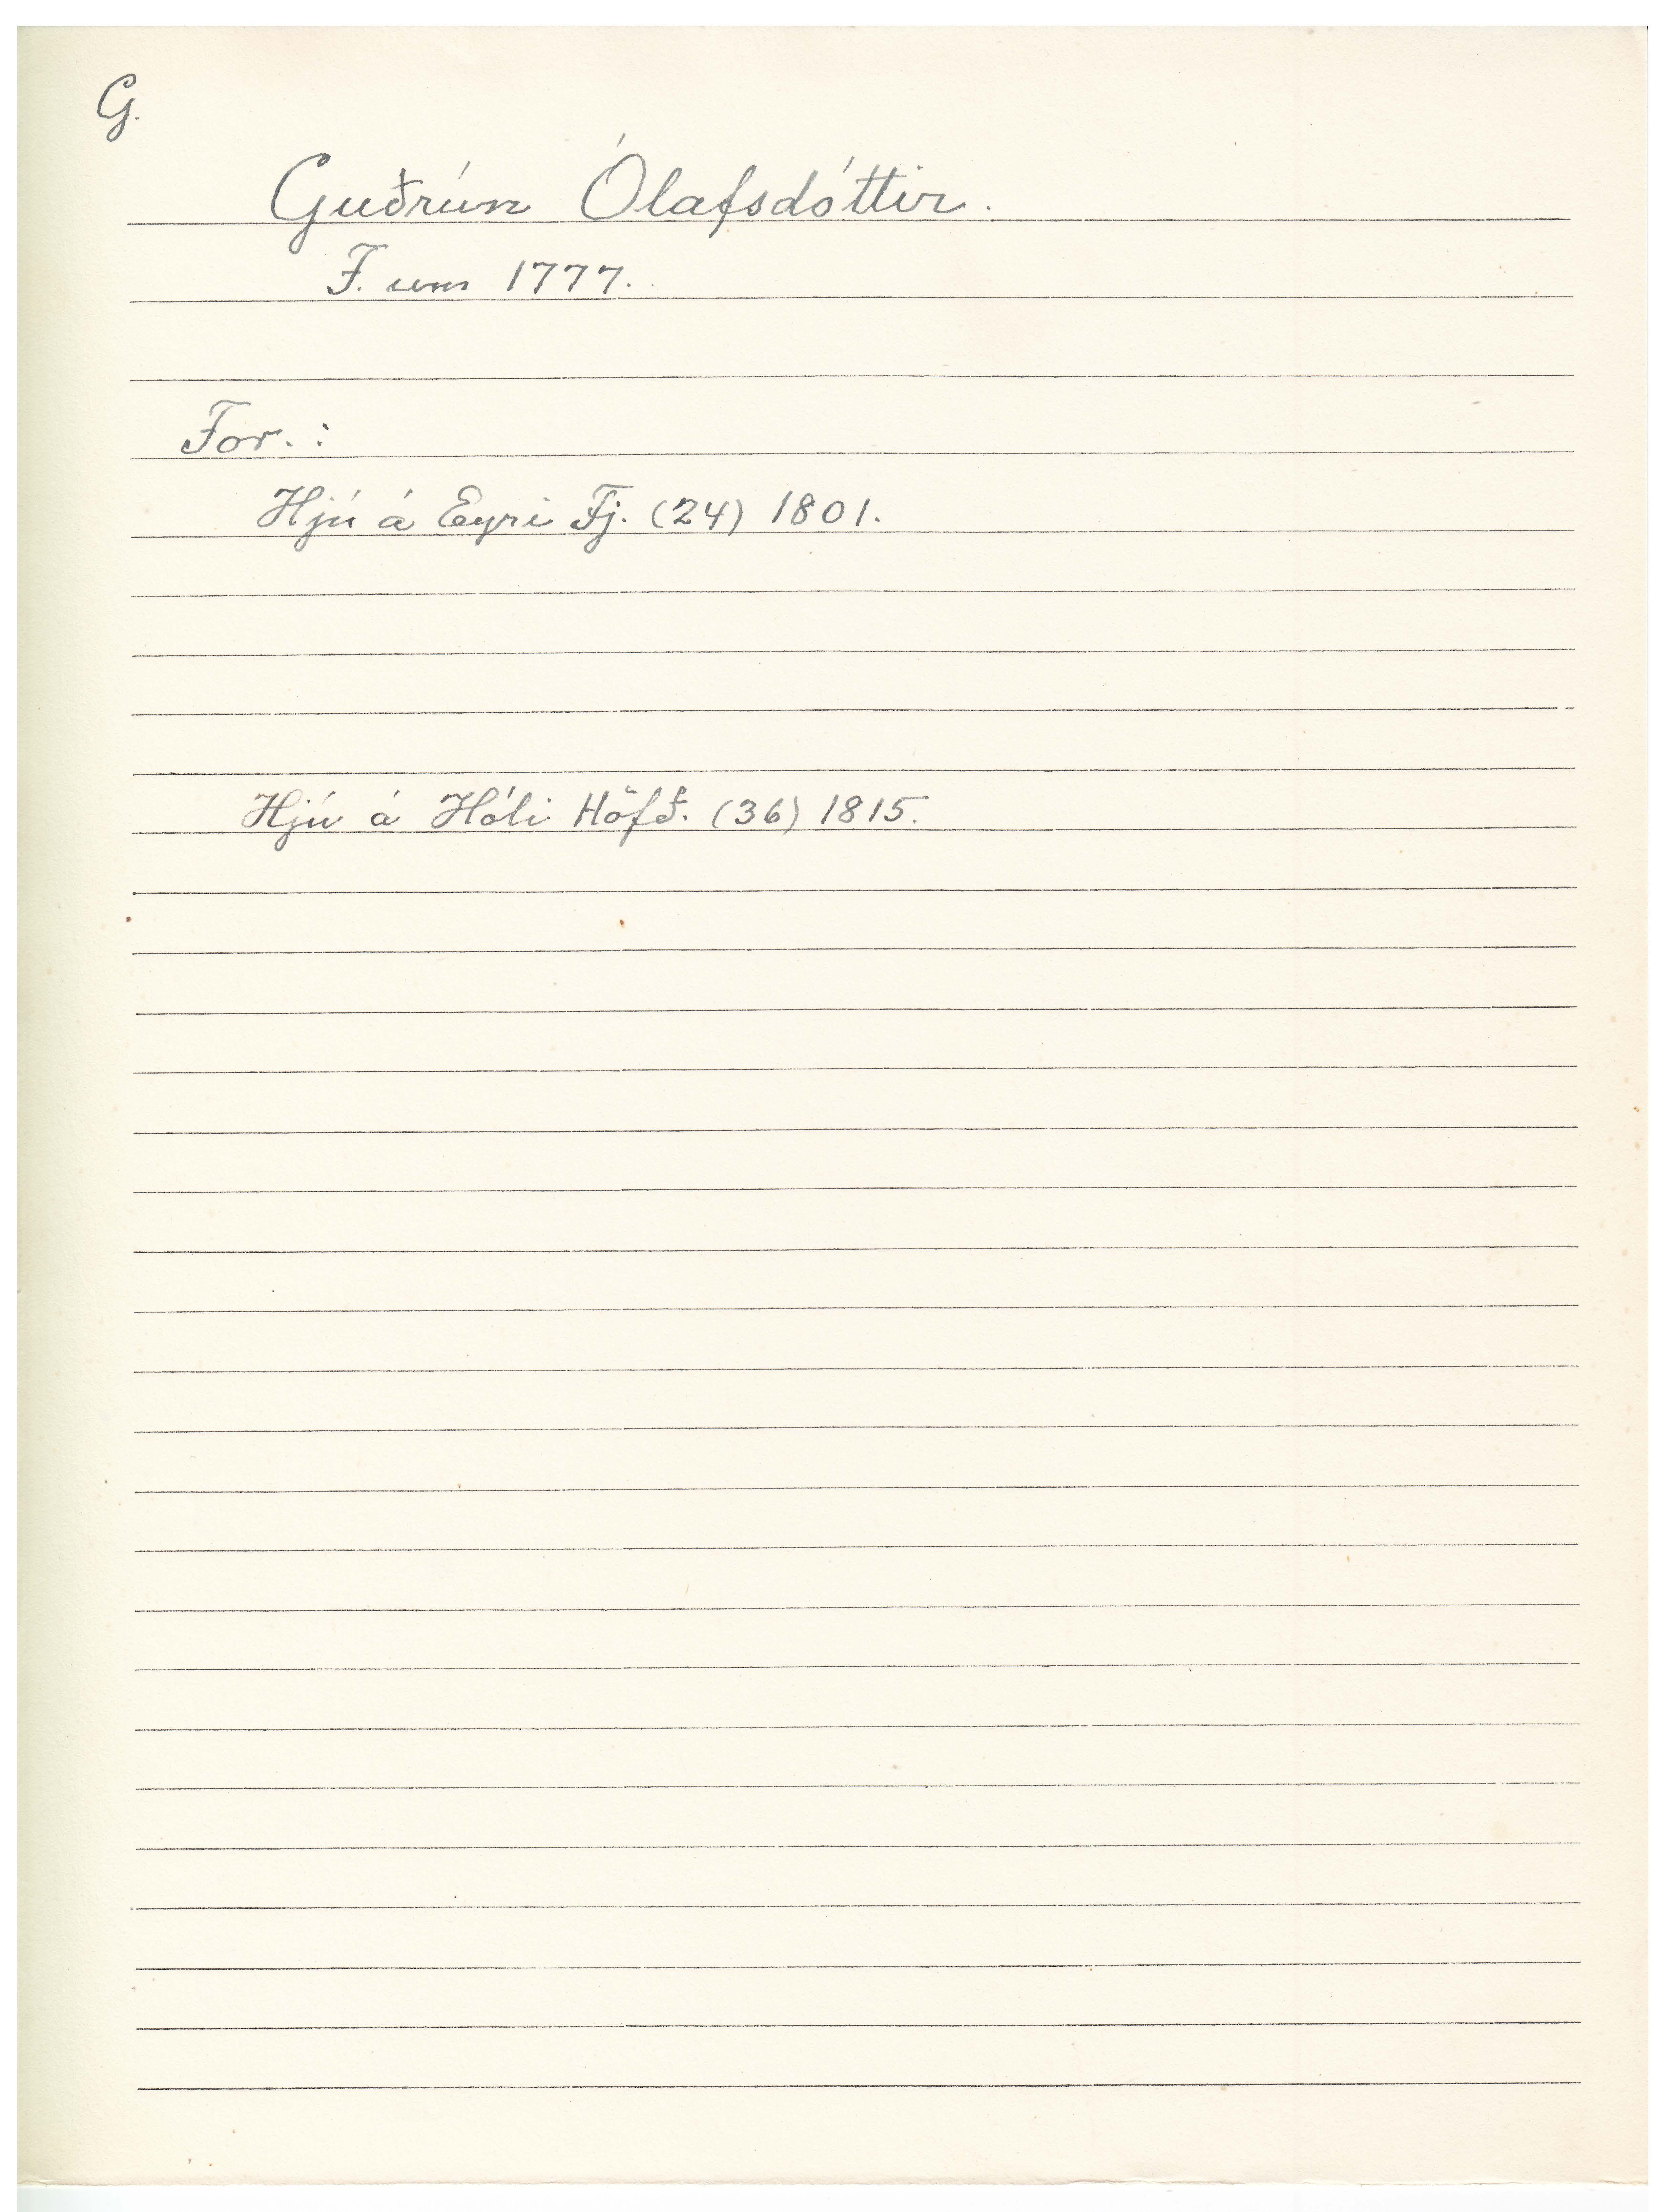 G.
Guðrún Ólafsdóttir.
F. um 1777.
For. :
Hjú á Eyri Fj. (24) 1801.
Hjú á Hóli Höfð. (36) 1815.